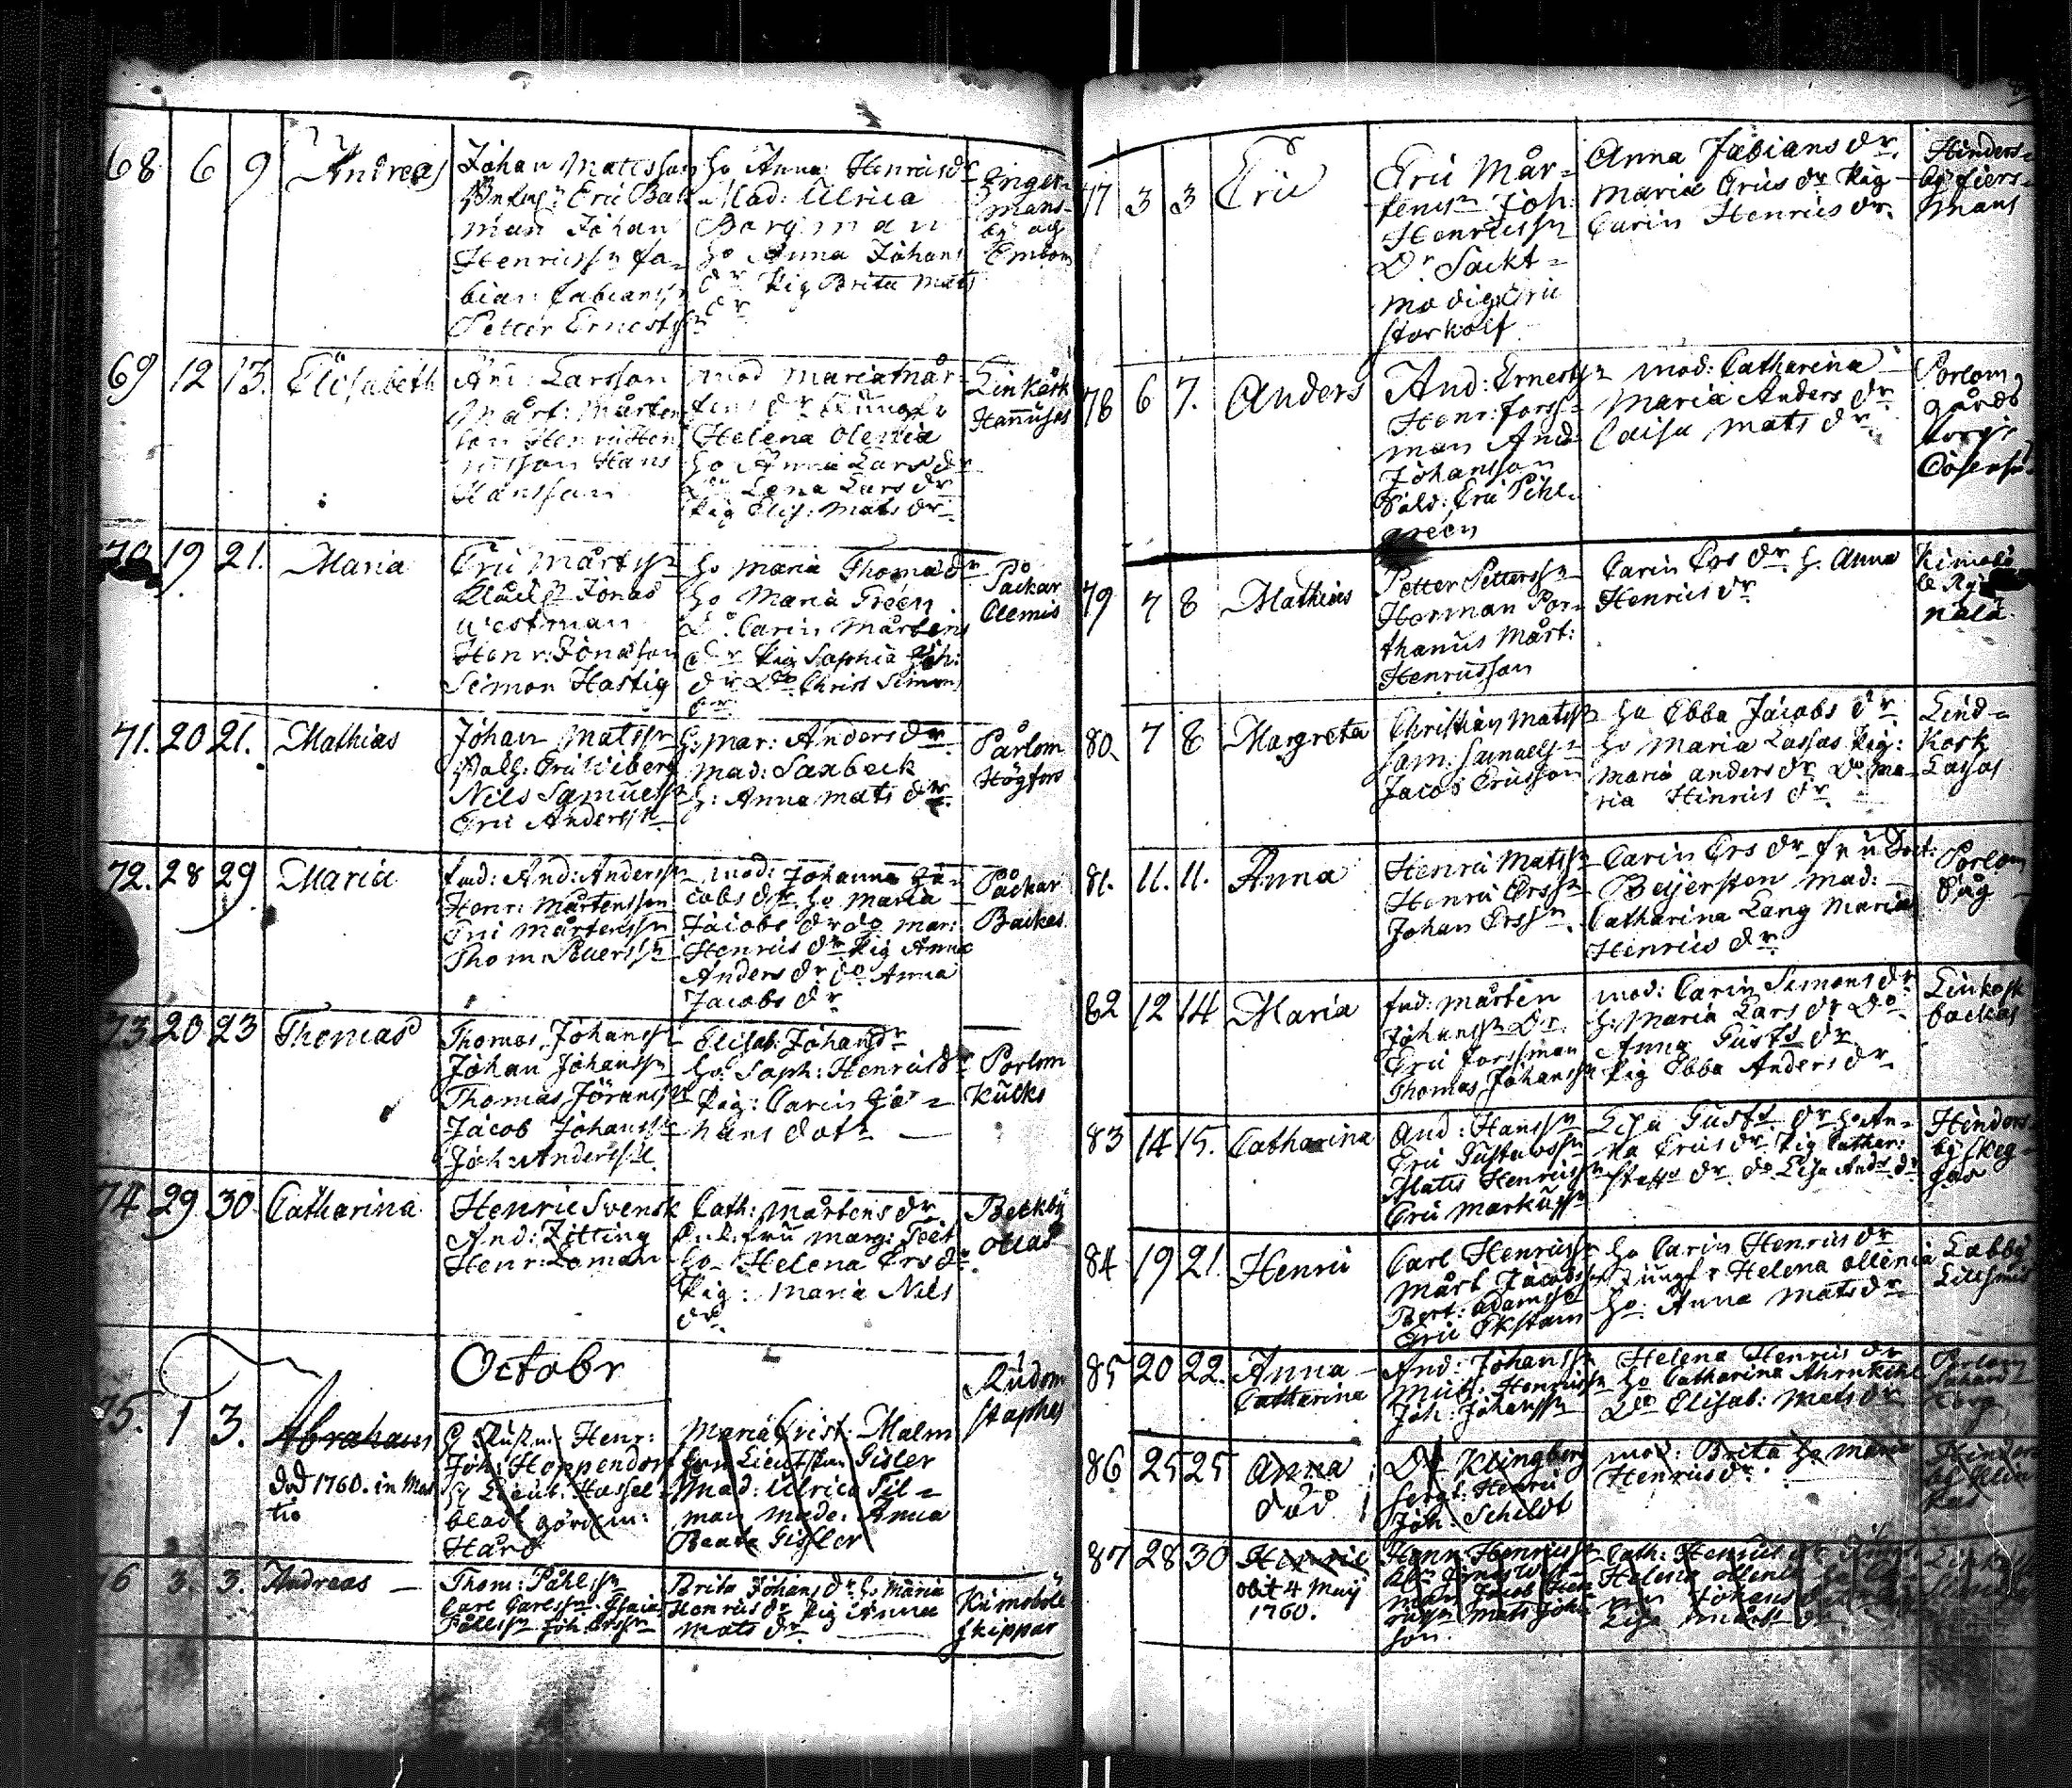 68 6 9 Andreas
Johan Matsson
Eric Bak
man Johan
Henricss:n Fa=
bian: Fabianss:n
Petter Ernestss:n
Ho Anna Henricsdr
Mad: Ulrica
Borgman
ho Anna Johans
dr Pig Brita Mats
dr
Inger=
mans=
by
Embom
69 12 13. Elisabeth
And: Larsson
Mårt: Mårten
son Henric Hen
ricsson Hans
Hansson
mod Maria Mår=
tens dr Jungfr
Helena Olenia
ho Anna Lars dr
Lena Lars dr
Pig Elis: Mats dr
Linkåsk
Hannusas
70 19 21. Maria
Eric Mårtss:n
Jonas
Westman
Henr: Jonasson
Simon Hastig
ho Maria Thomædr
ho Maria Green
Do Carin Mårtens
dr Pig Sophia Joh:
dr Do Christ Simons
dr
Påckar
Clemis
71. 20 21. Mathias
Johan Matss:n
Eric Wiberg
Nils Samuelss:n
Eric Anderss:n
h: Mar: Anders dr
Mad: Saxbeck
h: Anna Mats dr
Pårlom
Högfors
72. 28 29 Maria
And: Anderss:n
Henr: Mårtensson
Eric Mårtenss:n
Thom:
mod: Johanna Ja=
cobs dr ho Maria
Jacobs dr do Mar:
Henrics dr Pig Anna
Anders dr do Anna
Jacobs dr
Påckar
Backas
73 20 23 Thomas
Thomas Johanss:n
Johan Johanss:n
Thomas Jöranss:n
Jacob Johanss:n
Joh: Anderss:n
Elisab: Johansdr
ho: Soph: Henricsdr
Pig: Carin Jo=
hans dotr
Porlom
Kucks
74 29 30 Catharina
Henric Svensk
And: Zitting
Henr: Loman
Cath: Mårtens dr
fru Marg:
ho Helena Ersdr
Pig: Maria Nils
dr
Beckby
Ollas
Octobr
75. 1 3. Abraham
död 1760. in Mar
tio
Henr:
Joh: Hoppendorf
Lieut: Hassel=
bladt
Hård
Maria Christ: Malm
Lieut Gisler
Mad: Ulrica Til=
man Made: Anna
Beata Gissler
Rudom
Staphes
76 3. 3. Andreas
Thom: Påhlss:n
Carl Carlss:n Esaia
Pållss:n Joh: Erss:n
Brita Johans dr h: Maria
Henrics dr Pig Anna
Mats dr
Kimoböle
skippar
77 3 3 Eric
Eric Mår=
tenss:n Joh:
Henricss:n
Dr Sackt=
modig Eric
Storkolf
Anna Fabians dr
Maria Erics dr Pig
Carin Henrics dr
Hinders=
by fiers=
mans
78 6 7. Anders
And: Ernestss:n
Henr: Forss=
man And
Johansson
Sold: Eric Pihl=
green
mod: Catharina
Maria Anders dr
Caisa Mats dr
Porlom
gårds
torp
79 7 8 Mathias
Petter Petterss:n
Herman Por=
thanus Mårt:
Henricsson
Carin Ers dr h. Anna
Henrics dr
Kimobö
80 7 8 Margreta
Christian Matss:n
Sam: Samuelss:n
Jacob Ericsson
ho Ebba Jacobs dr
ho Maria Lassas Pig:
Maria Anders dr Do Ma=
ria Hinrics dr
Lind=
Kosk
Lassas
81. 11. 11. Anna
Henric Matss:n
Henric Erss:n
Johan Erss:n
Carin Ers dr fru
Beijersten Mad:
Catharina Lang Maria
Henrics dr
Porlom
Såg
82 12 14 Maria
Mårten
Johanss:n Dr
Eric Forssman
Thomas Johanss:n
mod: Carin Simons dr
h: Maria Lars dr Do
Anna Gusts dr
Pig Ebba Anders dr
Linkosk
backas
83 14 15. Catharina
And: Hanss:n
Eric Gustavss:n
Mats Henricss:n
Eric Markuss:n
Lisa Gusts dr ho An=
na Erics dr Pig Cathar:
Staffs dr do Lisa Ands dr
Hinders
by Skeg=
gas
84 19 21. Henric
Carl Henricss:n
Mårt Jacobss:n
Bert: Adamss:n
Eric Ekstam
ho Carin Henrics dr
Jungfr Helena Ollenia
ho: Anna Mats dr
Labby
Lillsmis
85 20 22. Anna
Catharina
And: Johanss:n
Mich: Henricss:n
Joh: Johanss:n
Helena Henrics dr
ho Catharina Ahrnkihl
Do Elisab: Mats dr
Porlom
torp
86 25 25 Anna
död
Dr Klingberg
Sergt: Henric
Joh: Schildt
mod: Brita ho Maria
Henrics dr
Hinders
by
87 28 30 Henric
Obiit 4 Maij
1760.
Henr: Henricss:n
Jacob
Mats Joh
son
Cath: Henrics dr
Helena Ollenia
Johans
Lisa Mårts dr